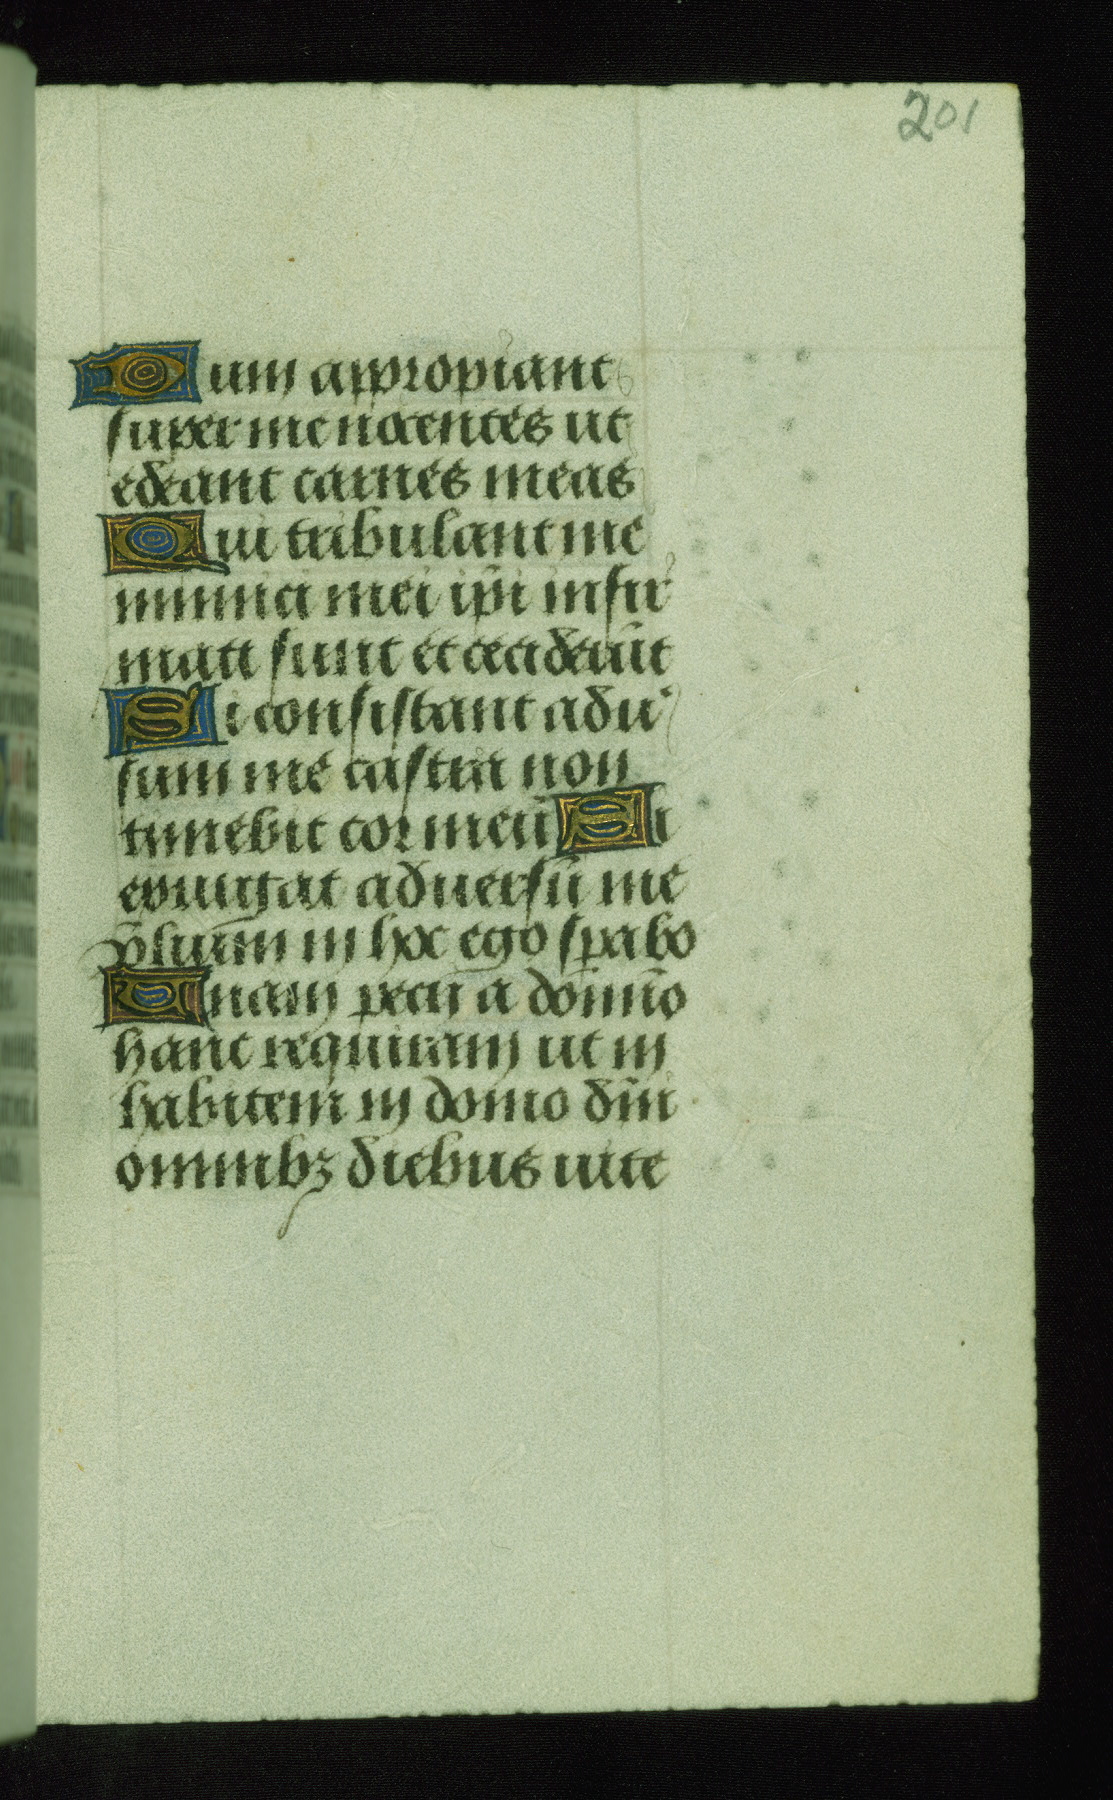 201
Dum appropiant
super me nocentes ut
edeant carnes meas
Qui tribulant me
inimici mei ip̄i infir
mati sunt et cecider̄ūt
Si consistant adu
sum me castra non
timebit cor meū Si
exurgat aduersū me
p̄lium in hoc ego sp̄abo
Unam pecii a domīno
hanc requiram ut in
habitem in domo dm̄i
omnibꝫ diebus uite